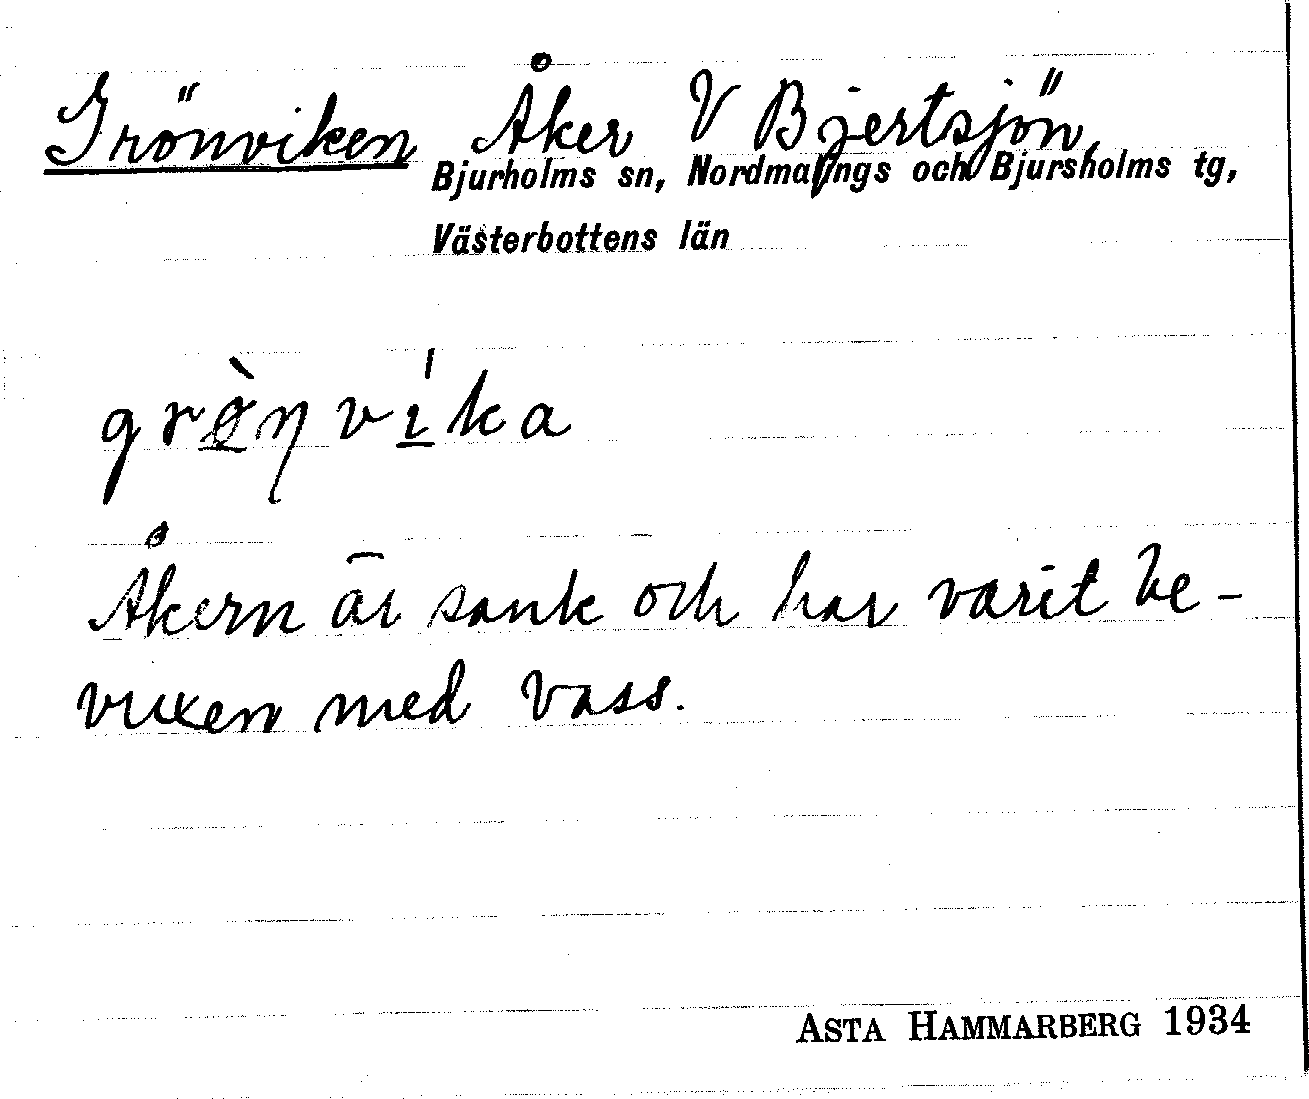 Grönviken Åker V Bjertsjön,
Bjurholms sn, Nordmalings och Bjursholms tg,
Västerbottens län
grø̀ŋvíka
Åkern är sank och har varit be-
vuxen med vass.
ASTA HAMMARBERG 1934